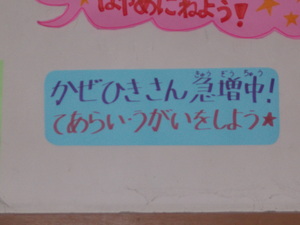 はやめにねよう!
かぜひきさん急増中!
てあらい・うがいをしよう★